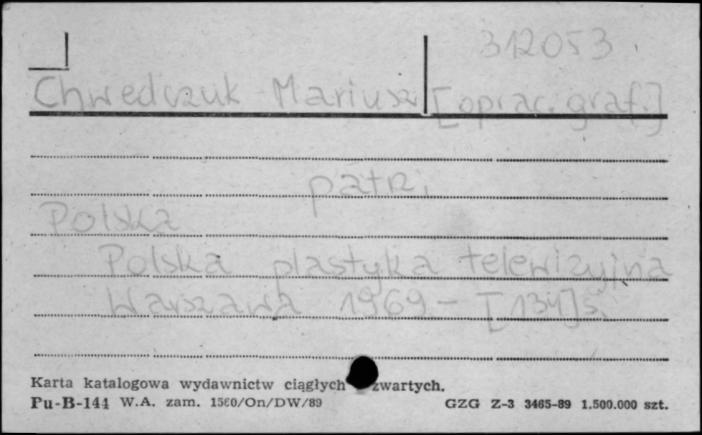 312053
Chwedczuk Mariusz [oprac. graf.]
patrz,
Polska
Polska plastyka telewizyjna
Warszawa 1969 - [134]s.
Karta katalogowa wydawnictw ciągłych zwartych.
Pu-B-144 W.A. zam. 1560/On/DW/89 GZG Z-3 3465-89 1.500.000 szt.